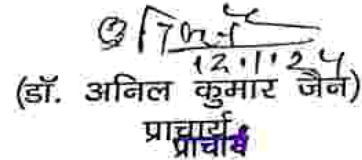 12.1.24
(डॉ. अनिल कुमार जैन)
प्राचार्य
प्राचार्य